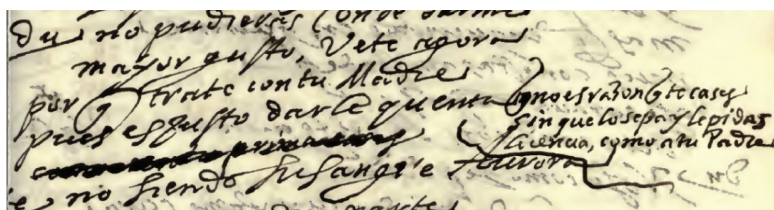 du no pudieras Conde darme
mayor gusto, Vete agora
por q̃ trate con tu Madre
pues es justo darle quenta
q̃ no es razon q̃ te cases
sin que lo sepa y le pidas
licencia, como a tu Padre
no siendo su sangre Aurora